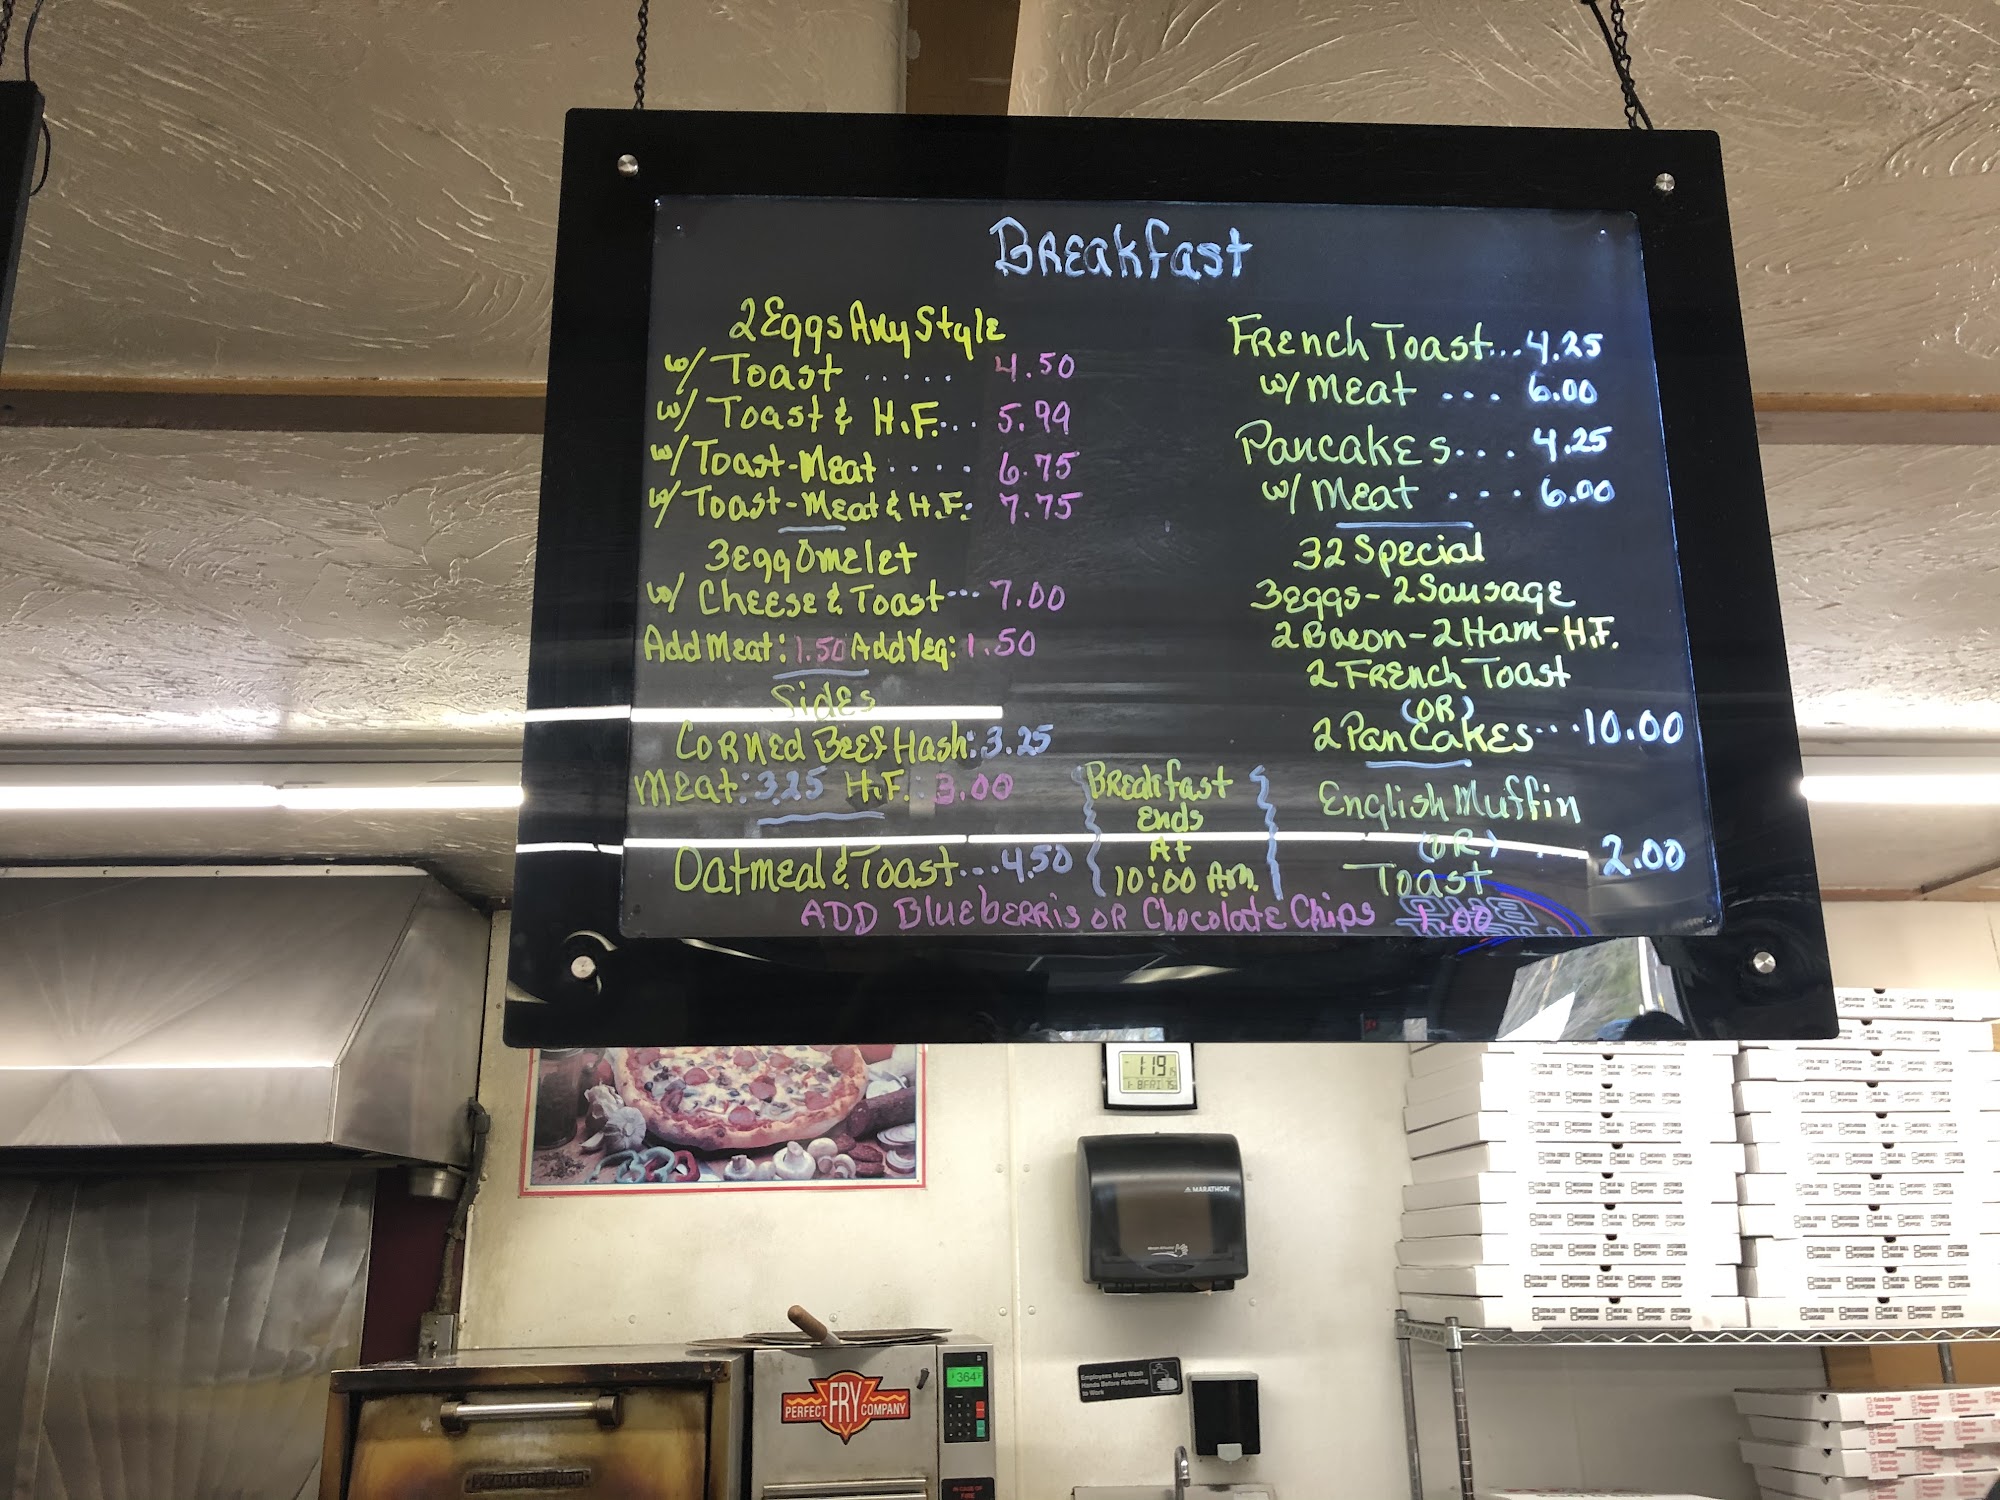 Breakfast
2 Eggs Any Style
w/ Toast ..... 4.50
w/ Toast & H.F... 5.99
w/ Toast-Meat .... 6.75
w/ Toast-Meat & H.F: 7.75
3 egg Omelet
w/ Cheese & Toast... 7.00
Add Meat: 1.50 Add Veg: 1.50
Sides
Corned Beef Hash: 3.25
Meat: 3.25 H.F.: 3.00
Oatmeal & Toast... 4.50
Breakfast
Ends
At
10:00 Am.
French Toast... 4.25
w/ Meat ... 6.00
Pancakes... 4.25
w/ Meat ... 6.00
32 Special
3 eggs - 2 Sausage
2 Bacon - 2 Ham - H.F.
2 French Toast
(OR)
2 Pancakes... 10.00
English Muffin
(OR) .. 2.00
Toast
ADD Blueberris or Chocolate Chips 1.00
1:19
FRI
MARATHON
PERFECT FRY COMPANY
364F
Employees Must Wash
Hands Before Returning
to Work
BAKERS PRIDE
IN CASE OF
FIRE